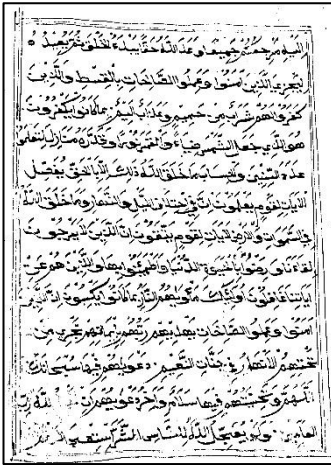 اليه مرجعكم جميعا وعد الله حقا يبدء الخلق ثم يعيده
ليجزي الذين امنوا وعملوا الصالحات بالقسط والذين
كفروا لهم شراب من حميم وعذاب اليم بما كانوا يكفرون
هو الذي جعل الشمس ضياء والقمر نورا وقدره منازل لتعلموا
عدد السنين والحساب ما خلق الله ذلك الا بالحق يفصل
الايات لقوم يعلمون ان في اختلاف الليل والنهار وما خلق الله
في السموات والارض لايات لقوم يتقون ان الذين لا يرجون
لقاءنا ورضوا بالحيوة الدنيا واطمئنوا بها والذين هم عن
اياتنا غافلون اولئك مأويهم النار بما كانوا يكسبون ان الذين
امنوا وعملوا الصالحات يهديهم ربهم بايمانهم تجري من
تحتهم الانهار في جنات النعيم دعويهم فيها سبحانك
اللهم وتحيتهم فيها سلام واخر دعويهم ان لله رب
العالمين ولو يعجل الله للناس الشر